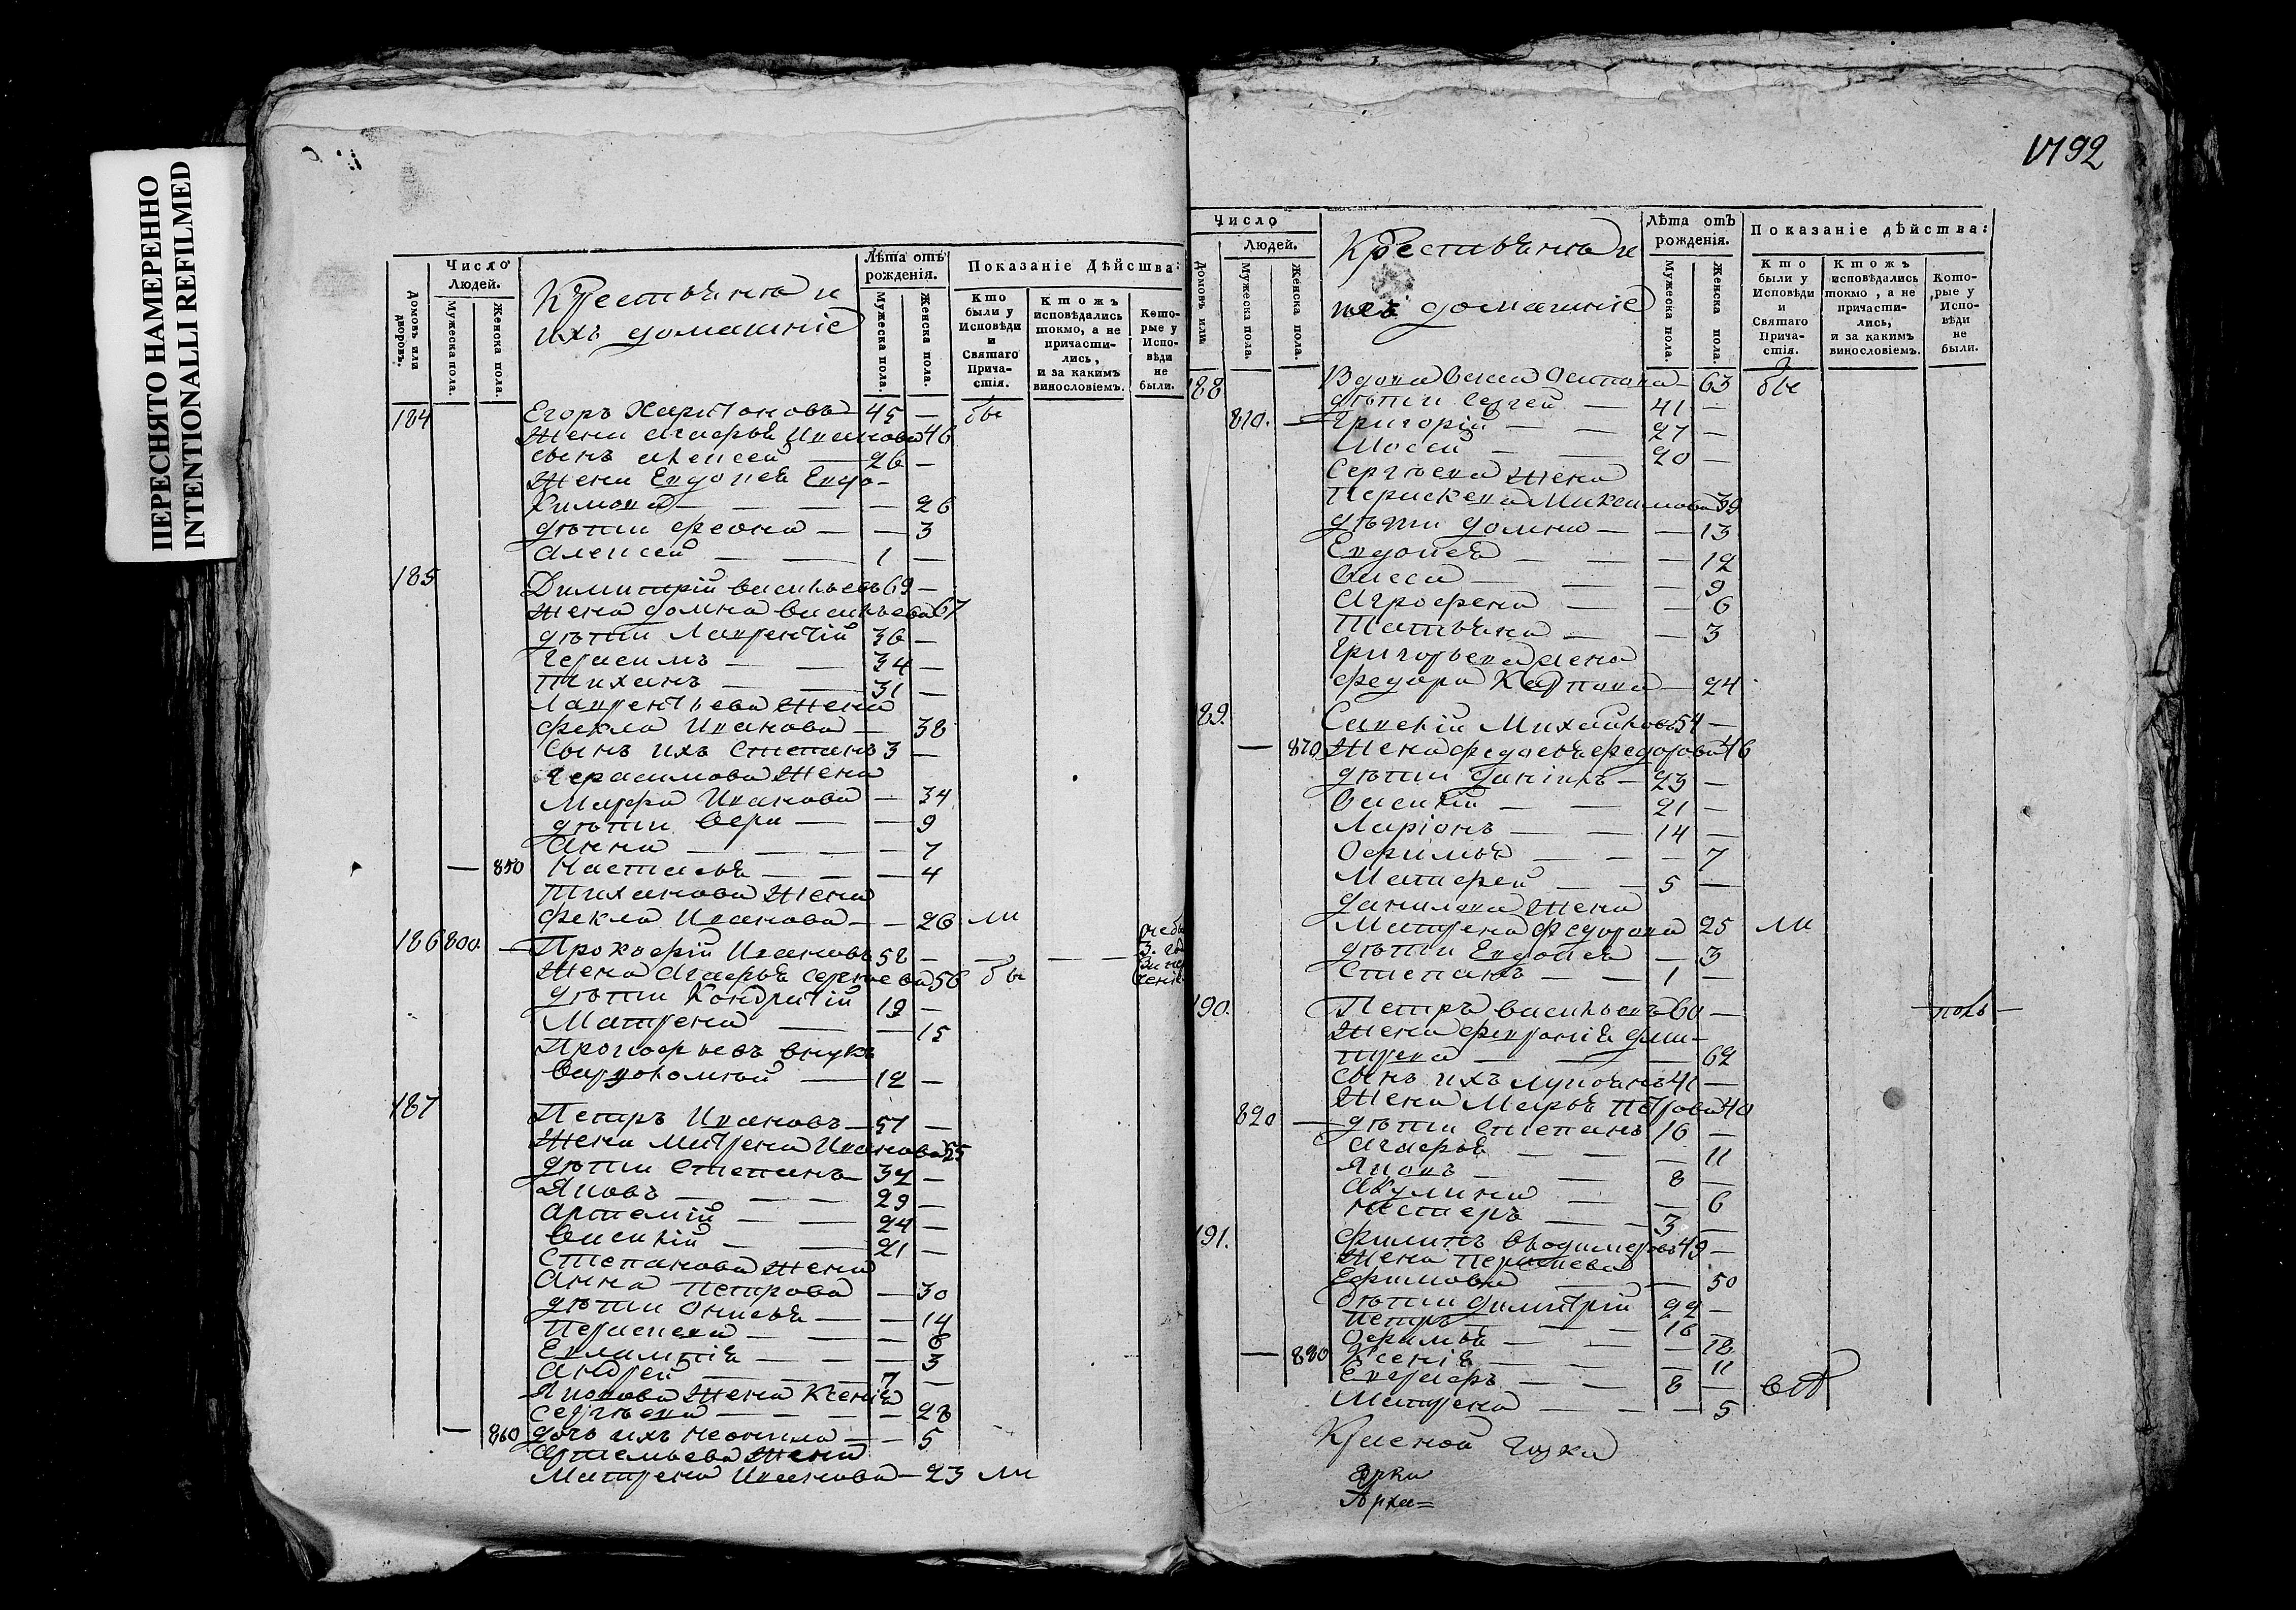 ПЕРЕСНЯТО НАМЕРЕННО
INTENTIONALLI REFILMED
Домовъ или дворовъ.
Число Людей.
Мужеска пола.
Женска пола.
Крестьяна и
ихъ домашніе
Лѣта отъ рожденія.
Мужеска пола.
Женска пола.
Показаніе Дѣйства:
Кто были у Исповѣди и Святаго Прича-стія.
Ктожъ исповѣдались токмо, а не причасти-лись, и за какимъ винословіемъ.
Кото-рые у Испо-вѣди не были.
184 Егоръ Харитоновъ 45 — бы
Жена Агафья Иванова 46
сынъ Алексей — 26 —
Жена Евдокея Евдо-
кимова — — — — 26
дѣти Феона — — 3
Алексей — — 1 —
185 Димитрій Васильевъ 69 —
Жена Домна Васильева 67
дѣти Лаврентій 36 —
Герасимъ — — 34 —
Тиханъ — — 31 —
Лаврентьева Жена
Фекла Иванова — 38
сынъ ихъ Степанъ 3 —
Герасимова Жена
Марфа Иванова — 34
дѣти Вера — — 9
Анна — — — — 7
— 850 Настасья — — — 4
Тиханова Жена
Фекла Иванова — — 26 ли
186 800. — Прокофій Ивановъ 58 —
Жена Агафья Сергѣева 56 бы
дѣти Кондратій 19 —
Матрена — — 15
Прокофьевъ внукъ
Варфоломей — 12 —
187 Петръ Ивановъ — 57 —
Жена Матрена Иванова 55
дѣти Степанъ — 32 —
Яковъ — — — 29 —
Артемій — — 24 —
Василій — — 21 —
Степанова Жена
Анна Петрова — 30
дѣти Анисья — — 14
Параскева — — — 6
Евлампія — — — 3
Андрей — — — 7 —
Яковова Жена Ксенія
Сергѣева — — — — 28
— 860 дочь ихъ Неонила — — 5
Артемьева Жена
Матрена Иванова — 23 ли
1792
Число
Домовъ или
Людей.
Мужеска пола.
Женска пола.
Крестьяна и
ихъ домашніе
Лѣта отъ рожденія.
Мужеска пола.
Женска пола.
Показаніе дѣйства:
Кто были у Исповѣди и Святаго Прича-стія.
Ктожъ исповѣдались токмо, а не причасти-лись, и за какимъ винословіемъ.
Кото-рые у Испо-вѣди не были.
188 Вдова Васса Осипова — 63 бы
дѣти Сергей — 41 —
810. — Григорій — — 27 —
Мосей — — 20 —
Сергѣева Жена
Параскева Максимова 39
дѣти Домна — — 13
Евдокея — — — 12
Васса — — — 9
Агрофена — — 6
Татьяна — — 3
Григорьева жена
Федора Карпова — 24
189. Савелій Михайловъ 54 —
— 870 Жена Федосья Федорова 46
дѣти Даніилъ — 23 —
Василій — — 21 —
Ларіонъ — — 14 —
Офимья — — — 7
Матфей — — 5 —
Данилова Жена
Матрена Федорова 25 ли
дѣти Евдокея — 3
Степанъ — — 1 —
190. Петръ Васильевъ 60 —
Жена Февронія Дми-
трева — — — 62
сынъ ихъ Лукоянъ 41 —
Жена Марья Петрова 40
820 — дѣти Степанъ 16 —
Агафья — — — 11
Яковъ — — 8 —
Акулина — — 6
Нестеръ — — 3 —
191. Филипъ Владимеровъ 49 —
Жена Параскева
Ефимова — — 50
дѣти Димитрій 22 —
Петръ — — — 16 —
Офимья — — — 12
— 880 Ксенія — — — 11
Евграфъ — — 8 —
Матрена — — — 5